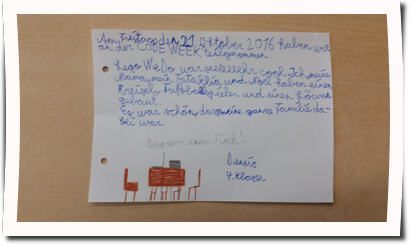 Am Freitag den 21 Oktober 2016 haben wir
an der CODE WEEK teilgenommen.
Lego WeDo war seeeeeehr cool. Ich, meine
Mama, mein Tata und Noel haben einen
Kreisel, Fußballspieler und einen Löwen
gebaut.
Es war schön, das meine ganze Familie da-
bei war
Das war unser Tisch!
Dennis
4. Klasse